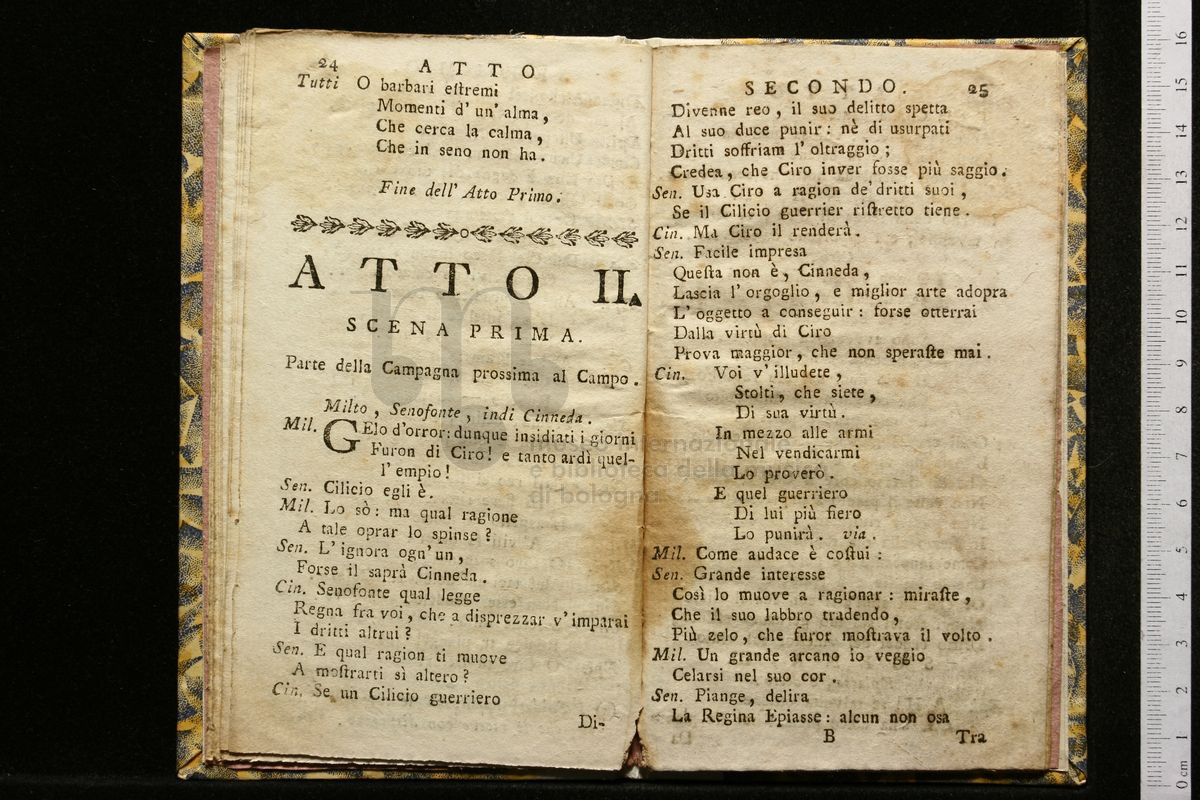 24
ATTO
Tutti O barbari eſtremi
Momenti d' un' alma,
Che cerca la calma,
Che in seno non ha.
Fine dell' Atto Primo.
ATTO II.
SCENA PRIMA.
Parte della Campagna prossima al Campo.
Milto, Senofonte, indi Cinneda.
Mil. GElo d'orror: dunque insidiati i giorni
Furon di Ciro! e tanto ardì quel-
l' empio!
Sen. Cilicio egli è.
Mil. Lo sò: ma qual ragione
A tale oprar lo spinse?
Sen. L' ignora ogn' un,
Forse il saprà Cinneda.
Cin. Senofonte qual legge
Regna fra voi, che a disprezzar v' imparai
I dritti altrui?
Sen. E qual ragion ti muove
A moſtrarti sì altero?
Cin. Se un Cilicio guerriero
Di-
SECONDO.
25
Divenne reo, il suo delitto spetta
Al suo duce punir: nè di usurpati
Dritti soffriam l' oltraggio;
Credea, che Ciro inver fosse più saggio.
Sen. Usa Ciro a ragion de' dritti suoi,
Se il Cilicio guerrier riſtretto tiene.
Cin. Ma Ciro il renderà.
Sen. Facile impresa
Queſta non è, Cinneda,
Lascia l' orgoglio, e miglior arte adopra
L' oggetto a conseguir: forse otterrai
Dalla virtù di Ciro
Prova maggior, che non speraſte mai.
Cin. Voi v' illudete,
Stolti, che siete,
Di sua virtù.
In mezzo alle armi
Nel vendicarmi
Lo proverò.
E quel guerriero
Di lui più fiero
Lo punirà. via.
Mil. Come audace è coſtui:
Sen. Grande interesse
Così lo muove a ragionar: miraſte,
Che il suo labbro tradendo,
Più zelo, che furor moſtrava il volto.
Mil. Un grande arcano io veggio
Celarsi nel suo cor.
Sen. Piange, delira
La Regina Epiasse: alcun non osa
B
Tra
museo internazionale
e biblioteca della
di bologna
0 cm 1 2 3 4 5 6 7 8 9 10 11 12 13 14 15 16